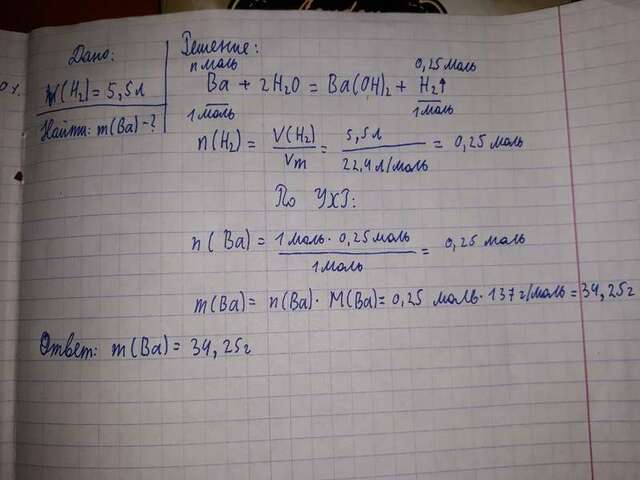 Дано:
V(H₂) = 5,5л
Найти: m(Ba) -?
Решение:
n моль 0,25 моль
Ba + 2H₂O = Ba(OH)₂ + H₂↑
1 моль 1 моль
n(H₂) = V(H₂)/Vm = 5,5л/22,4 л/моль = 0,25 моль
По УХЗ:
n(Ba) = 1 моль · 0,25 моль/1 моль = 0,25 моль
m(Ba) = n(Ba) · M(Ba) = 0,25 моль · 137 г/моль = 34,25г
Ответ: m(Ba) = 34,25г